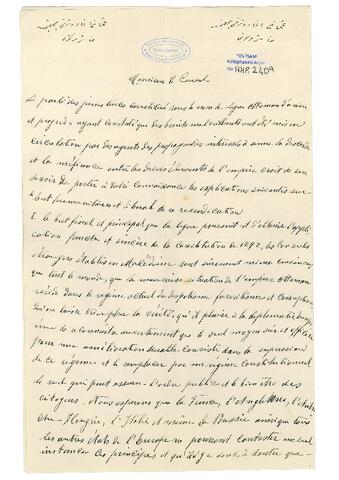 TDV İSAM
Kütüphanesi Arşivi
No HHP. 2409
Monsieur le Consul
Le parti des jeunes turcs constitué sous le nom de ligue Ottoman d'union
et progrès, ayant constaté que des bruits malveillants ont été mis en
circulation par des agents des propagandes intéressés à semer la discorde
et la méfiance entre les divers éléments de l'empire croit de son
devoir de porter à votre connaissance les explications suivantes sur
le but humanitaire et loyal de sa revendication
I. Le but final et principal que la ligue poursuit est d'obtenir l'appli-
cation prompte et sincère de la Constitution de 1292, les Consuls
étrangers établis en Macédoine sont sûrement mieux convaincus
que tout le monde, que la mauvaise situation de l'empire ottoman
réside dans le régime actuel du despotisme, favoritisme et corruption
qu'on sache bien que la vérité, qu'il plaise à la diplomatie europé-
enne de reconnaître ouvertement que le seul moyen sûr et efficace
pour une amélioration durable consiste dans la supression
de ce régime et le remplacer par un régime constitutionnel
le seul qui peut assurer l'ordre public et le bien être des
citoyens. Nous esperons que la France, l'Angleterre, l'Autri-
che-Hongrie, l'Italie et même la Russie ainsi que tous
les autres états de l'Europe ne pourront contester un seul
instant ces principes et qu'il n'y a donc à douter que